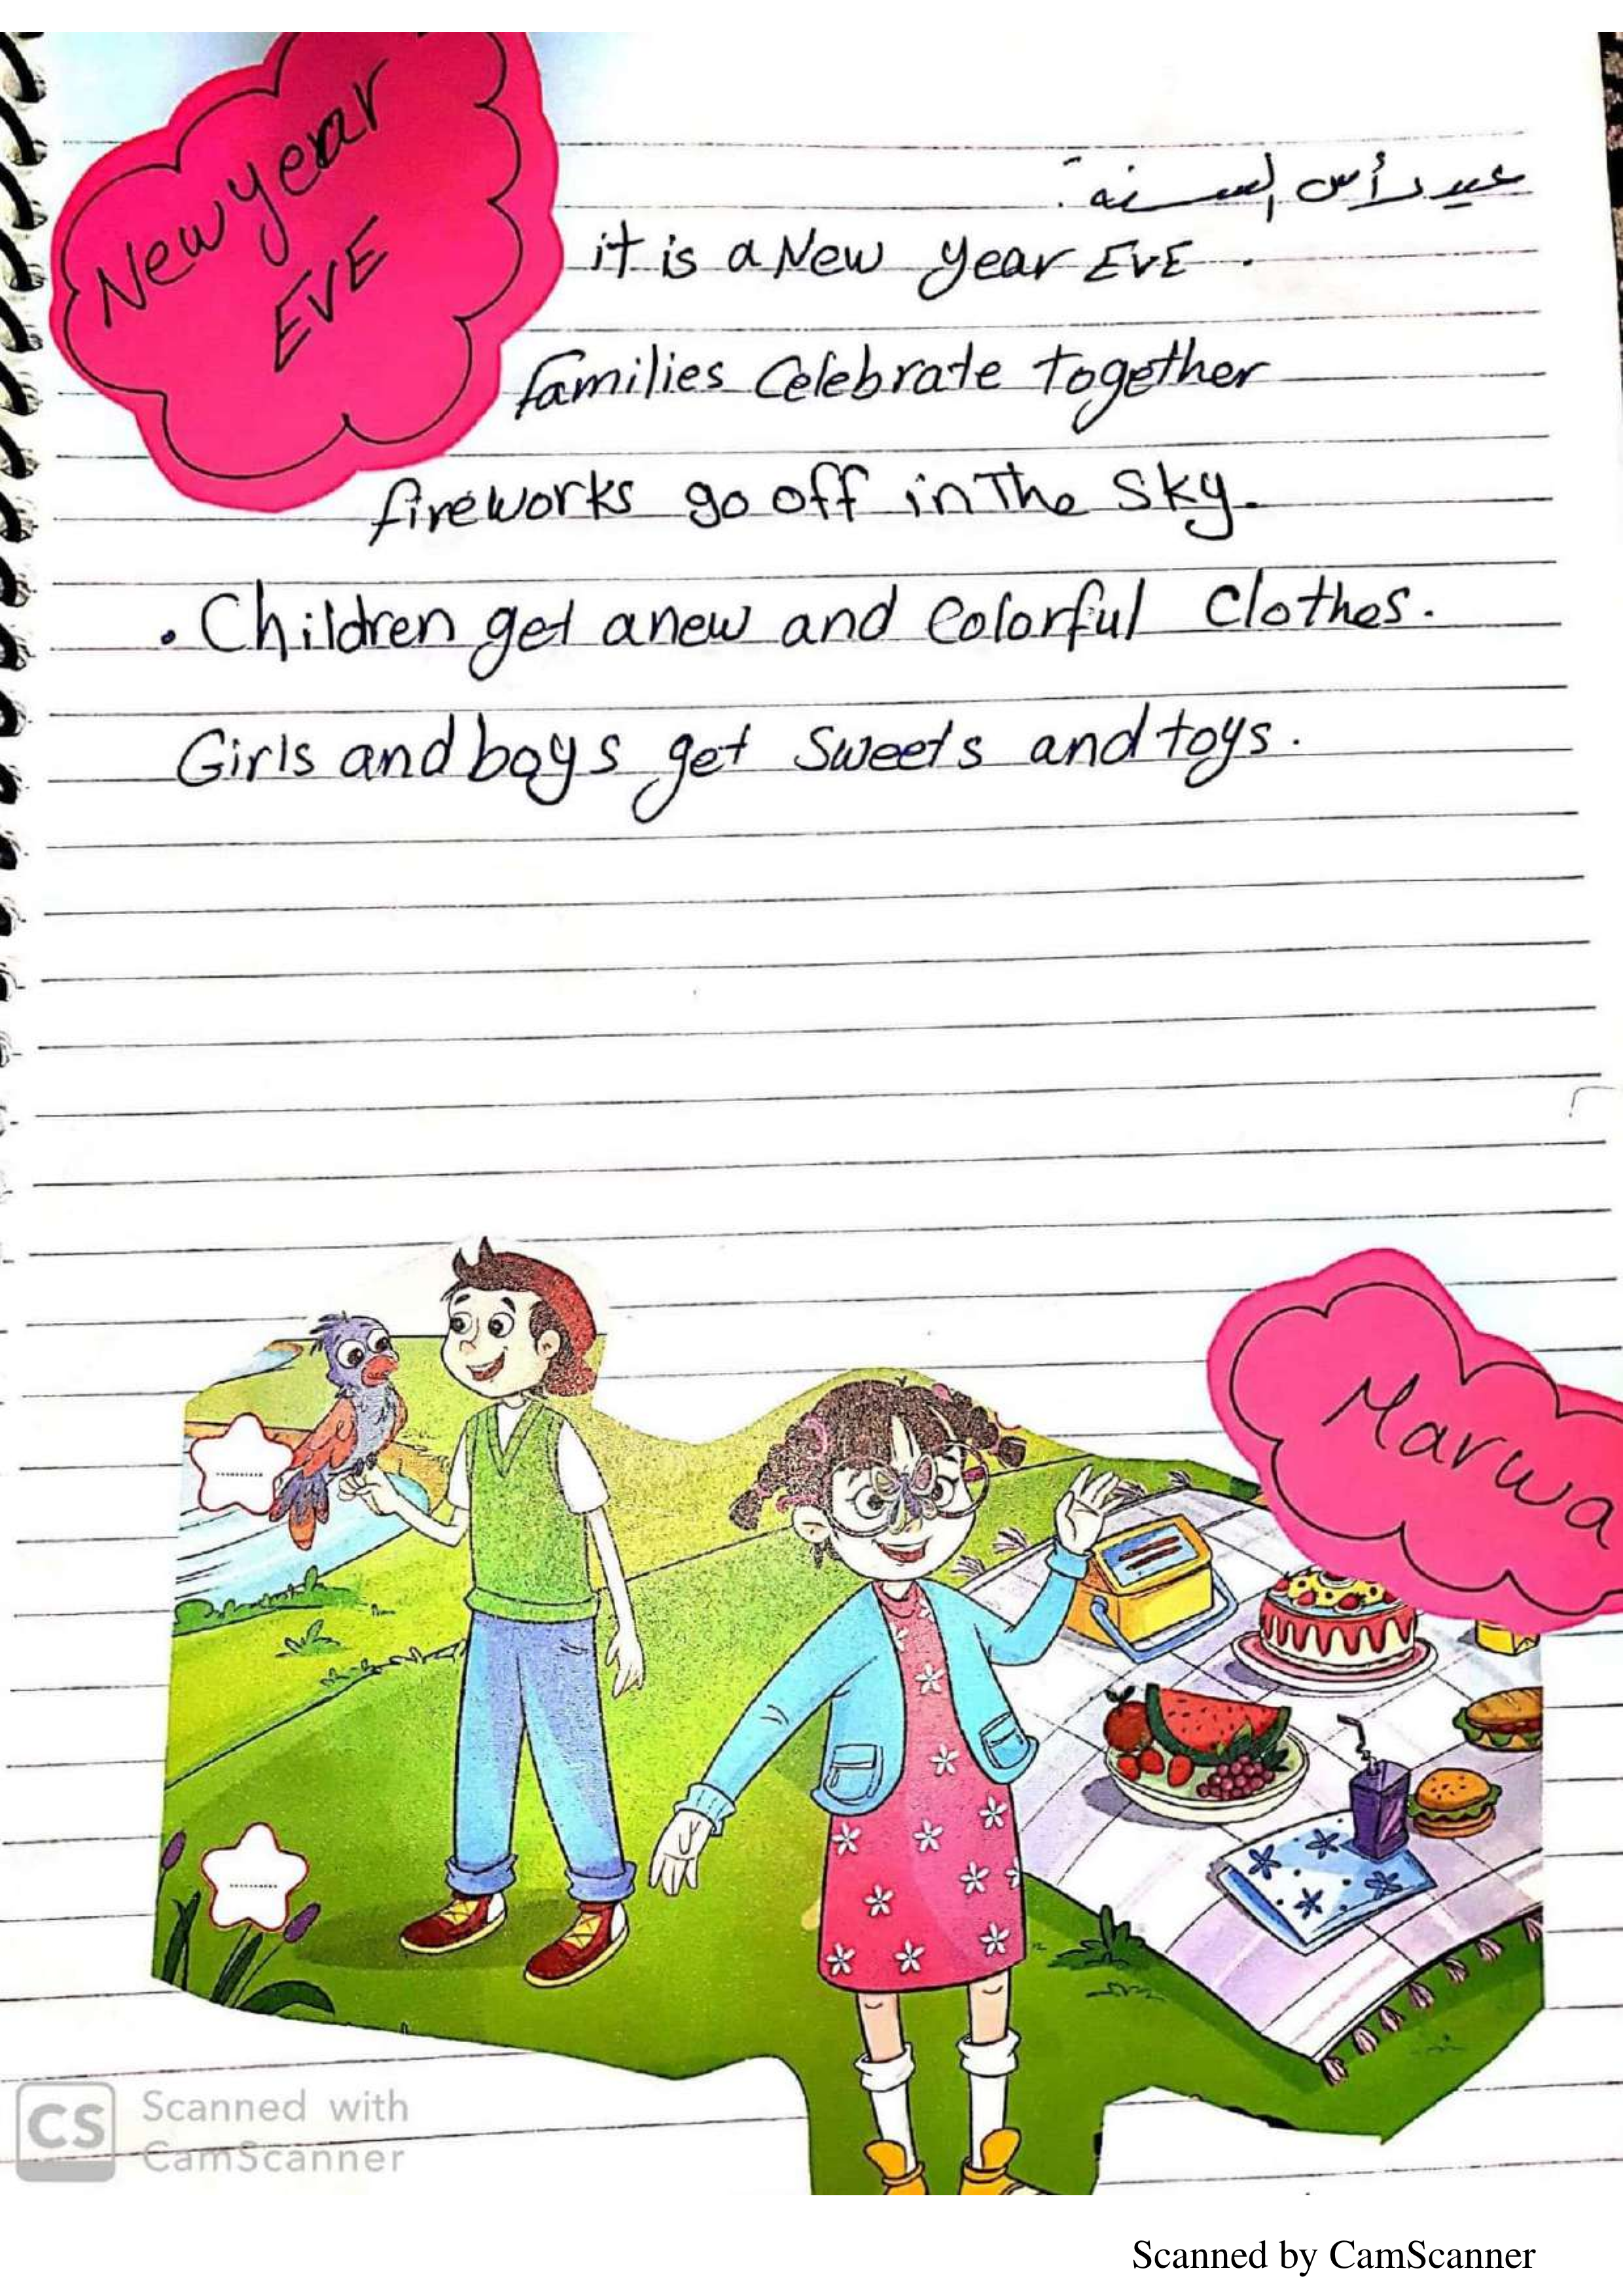 New year
EVE
عيد رأس السنة.
it is a New year EVE.
families Celebrate together
fireworks go off in The sky.
. Children get a new and Colorful Clothes.
Girls and boys get Sweets and toys.
Marwa
CS Scanned with
CamScanner
Scanned by CamScanner